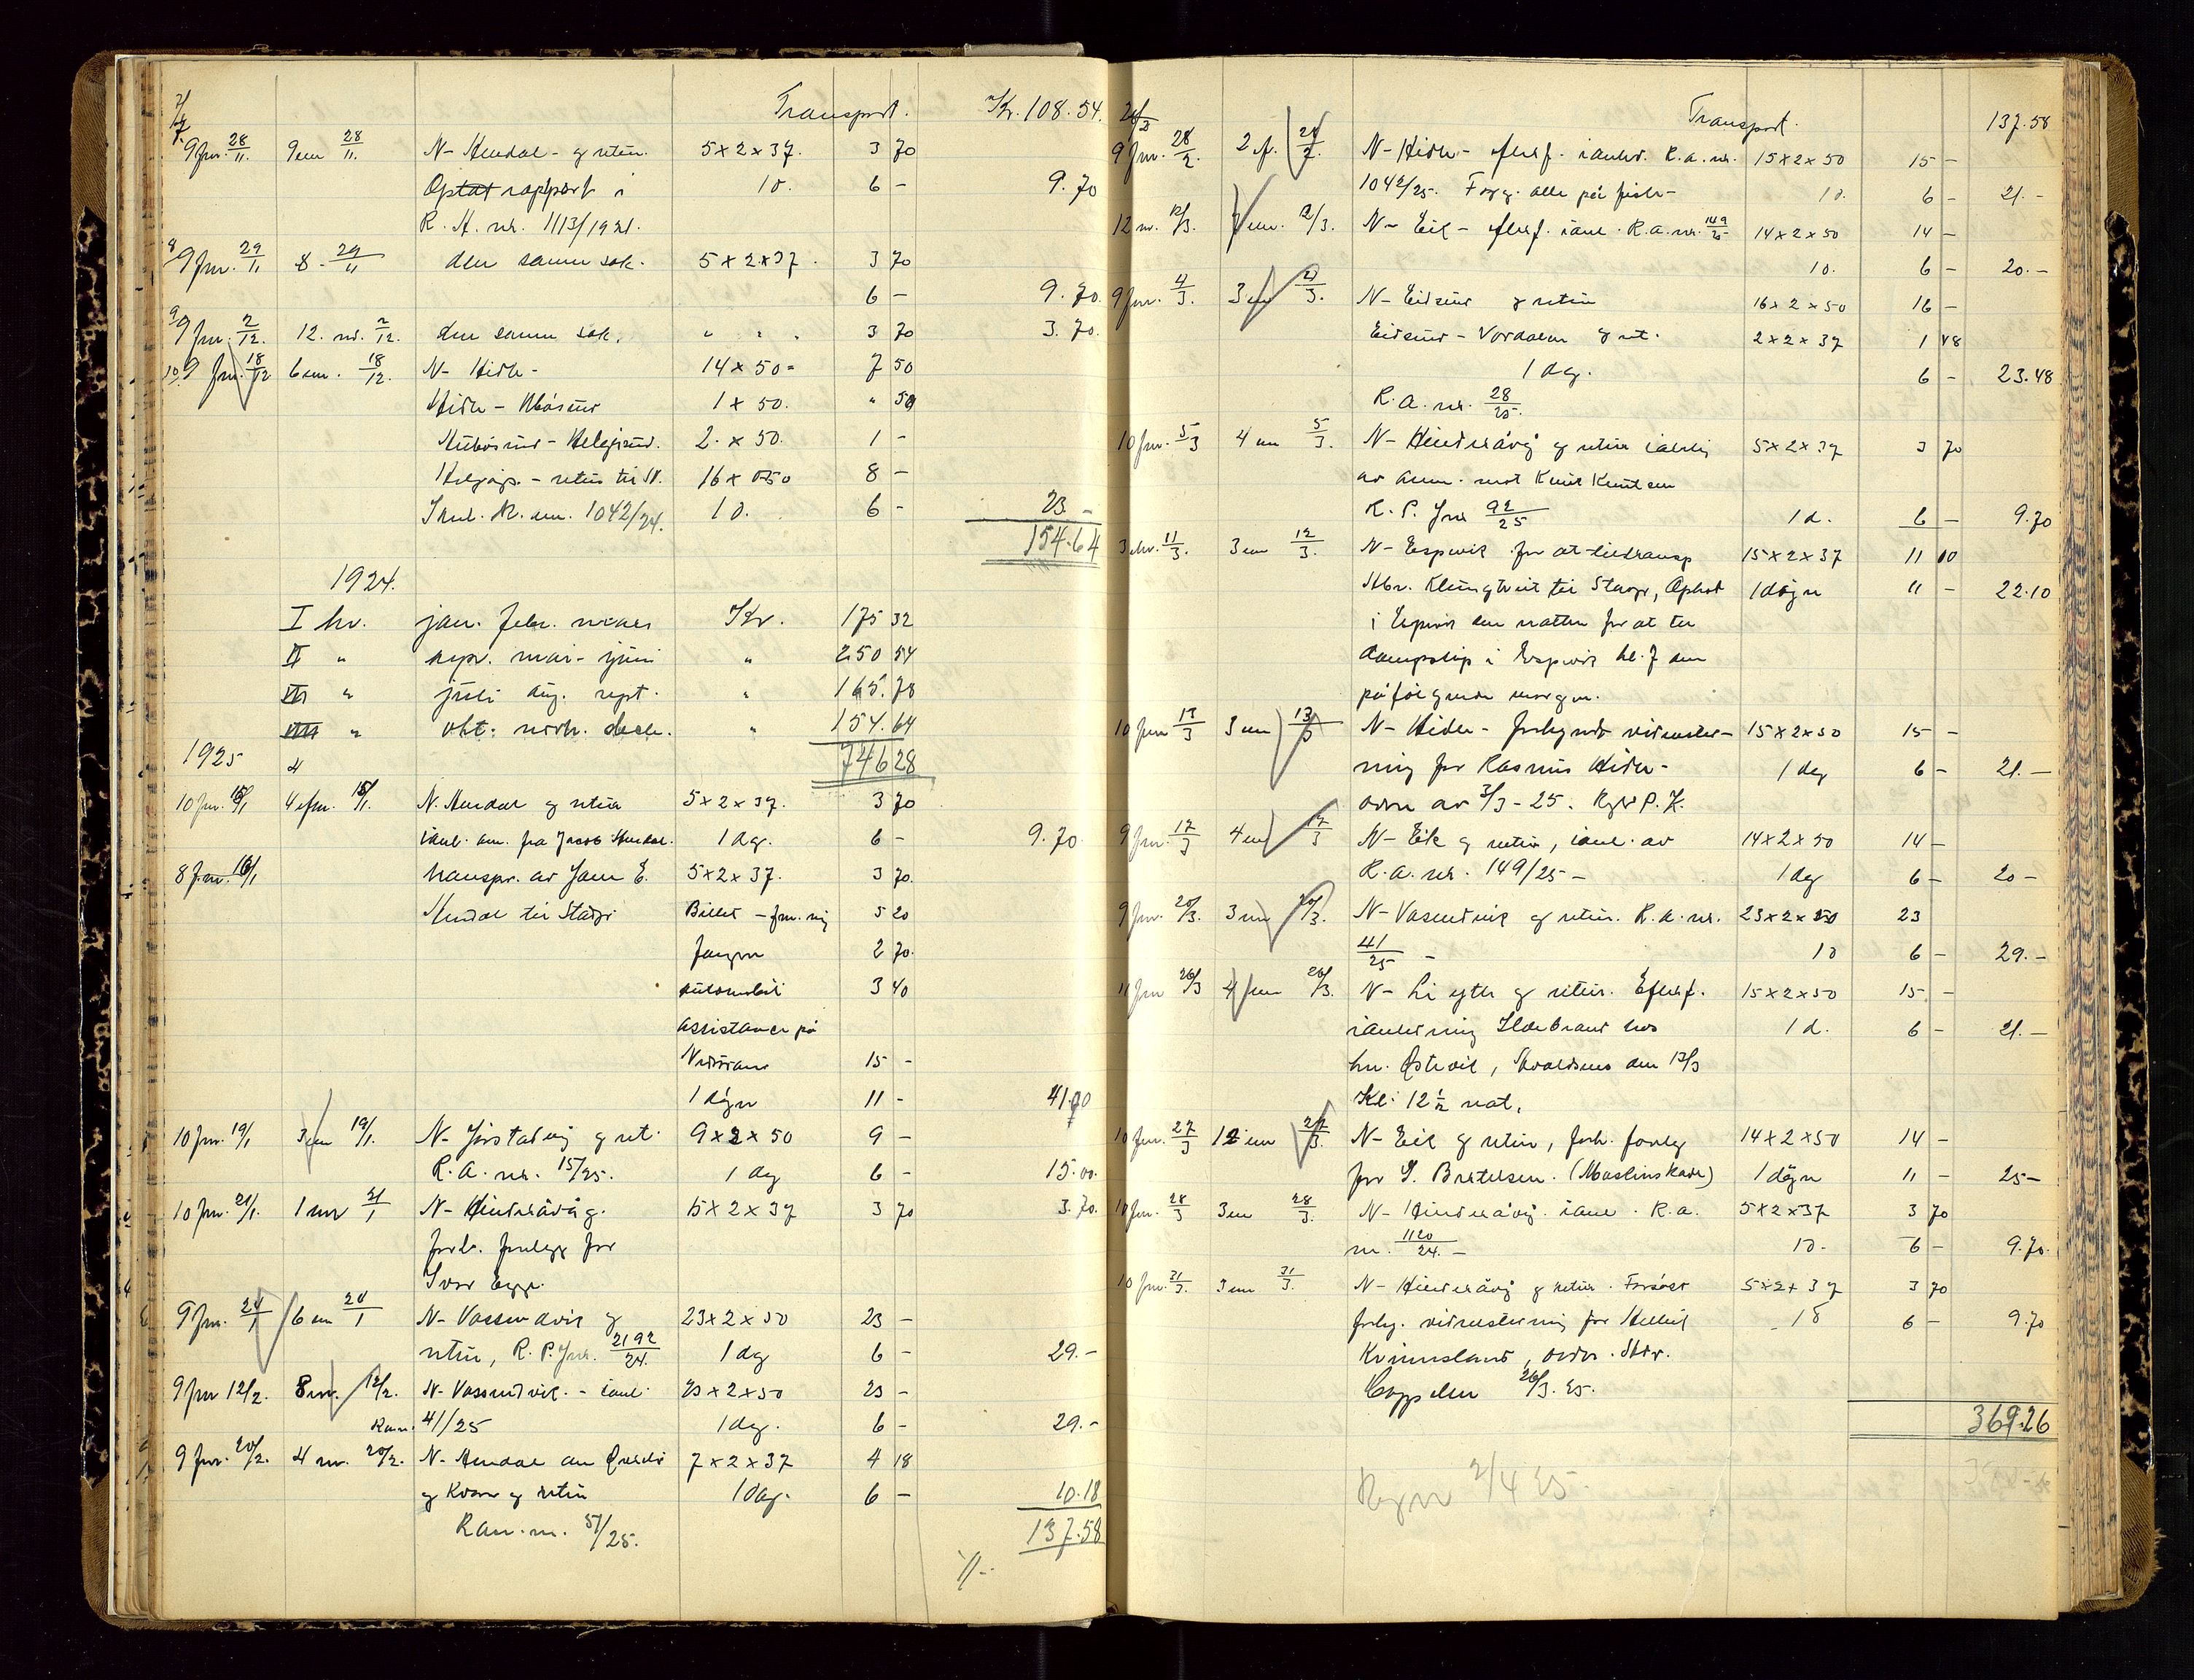 Transport. Kr. 108.54.
9 fm. 28/11. 9 em 28/11. N- Hendal - g retur. 5 x 2 x 37. 3 70
Optat rapport i 1 d. 6 - 9.70
R. A. nr. 1113/1921.
9 fm. 29/11 8 - 29/11 den samme sak. 5 x 2 x 37. 3 70
6 - 9.70.
9 fm. 2/12. 12. md. 2/12. den samme sak. " " " 3 70 3.70.
10 9 fm. 18/12 6 em. 18/12. N- Hidle - 14 x 50 = 7 50
Hidle - 1 x 50. " 50
2. x 50. 1 -
- retur til N. 16 x 050 8 -
1042/24. 1 d. 6 - 23 -
154.64
1924.
I hv. jan. febr. mars Kr. 175 32
II " apr. mai - juni " 250 54
III " juli aug. sept. " 165.78
IIII " okt. novb. desb. " 154.64
1925 746 28
10 fm. 15/1 4 efm. 15/1. N. Hendal g retur 5 x 2 x 37. 3 70
ianl. an. fra Jacob Hendal. 1 dag. 6 - 9.70
8 fm. 16/1 transp. av Jam E. 5 x 2 x 37. 3 70.
Hendal til Stavgr Billet - fm. mig 5 20
fangen 2 70.
automobil 3 40
assistance på
15 -
1 døgn 11 - 41.70
10 fm. 19/1 3 em 19/1. N- Jørstadvåg g ret. 9 x 2 x 50 9 -
R. A. nr. 15/25. 1 dag 6 - 15.00.
10 fm. 21/1. 1 mr 21/1 N- Hinderåvåg. 5 x 2 x 37 3 70 3.70.
forb. forelegg for
Ivar
9 fm. 24/1 6 em 24/1 N- Vassendvik g 23 x 2 x 50 23 -
retur, R. P. Jnr. 2192/24. 1 dag 6 - 29.-
9 fm 12/2. 8 m. 12/2. N- Vassendvik. - ianl. 23 x 2 x 50 23 -
41/25 1 dag. 6 - 29.-
9 fm. 20/2. 4 m. 20/2. N- Hendal 7 x 2 x 37 4 18
g Kvam g retur 1 dag. 6 - 10.18
51/25. 137.58
Transport. 137.58
9 fm. 28/2. 2 f. 28/2. N- Hidle - efterf. ianled. R. a. nr. 15 x 2 x 50 15 -
1042/25. Forg. alle på fiske - 1 d. 6 - 21.-
12 m. 12/3. em. 2/3. N- Eik - efterf. ianl. R. a. nr. 149/25 14 x 2 x 50 14 -
1 d. 6 - 20.-
9 fm. 4/3. 3 em 4/3. N- Eidsund g retur 16 x 2 x 50 16 -
Eidsund - Vordalen g ret. 2 x 2 x 37 1 48
1 dag. 6 - 23.48
R. A. nr. 28/25.
10 fm. 5/3 4 em 5/3. N- Hinderåvåg g retur 5 x 2 x 37 3 70
av anm. mot Knut Knutsen
R. P. Jnr 92/25 1 d. 6 - 9.70
11/3. 3 em 12/3. N- Espevik for at 15 x 2 x 37 11 10
til Stavgr, Ophot 1 døgn 11 - 22.10
i Espevik den natten for at ta
dampskip i Espevik kl. 7 den
påfølgende morgen.
10 fm 13/3 3 em 13/3 N- Hidle - forkynd vidneslev- 15 x 2 x 50 15 -
ning for Rasmus Hidle - 1 dag 6 - 21.-
3/3 - 25. P. K.
9 fm. 17/3 4 em 17/3 N- Eik g retur, ianl. av 14 x 2 x 50 14 -
R. a. nr. 149/25 - 1 dag 6 - 20 -
9 fm. 20/3. 3 em 20/3. N- Vassendvik g retur. R. a. nr. 23 x 2 x 50 23
41/25 - 1 d 6 - 29.-
11 fm 26/3 4 fm 26/3. N- Li ytre g retur. Efterf. 15 x 2 x 50 15 -
ianledning Ildebrand hos 1 d. 6 - 21.-
hr. Østevik, den 13/3
Kl. 12 1/2 nat.
10 fm. 27/3 12 em 27/3. N- Eik g retur, forh. foreleg 14 x 2 x 50 14 -
for S. Bertelsen. (Maskinskade) 1 døgn 11 - 25 -
10 fm. 28/3 3 em 28/3. N- Hinderåvåg. ianl. R. a. 5 x 2 x 37 3 70
nr. 1120/24. - 1 d. 6 - 9.70.
10 fm. 31/3. 3 em 31/3. N- Hinderåvåg g retur. Forsøkt 5 x 2 x 37 3 70
forkg. for 1 d 6 - 9.70
Kvinnesland,
26/3. 25.
369.26
2/4 25.